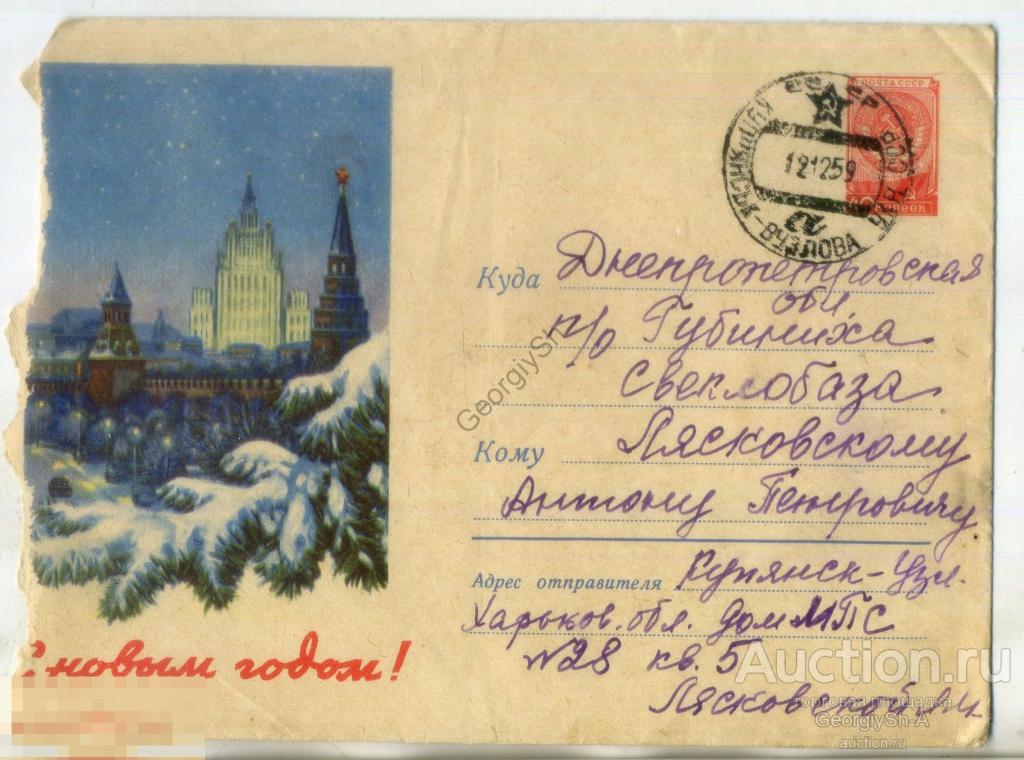 ПОЧТА СССР
40 копеек
СССР
КУП'ЯНСЬК-ВУЗЛОВА
121259
Куда Днепропетровская
обл
п/о Губиниха
Свеклобаза
Кому Лясковскому
Антону Петровичу
Адрес отправителя Купянск-Узл.
Харьков. обл. дом МПС
№28 кв. 5
Лясковской
С новым годом!
GeorgiySh-A
Auction.ru
торговая площадка
GeorgiySh-A
auction.ru